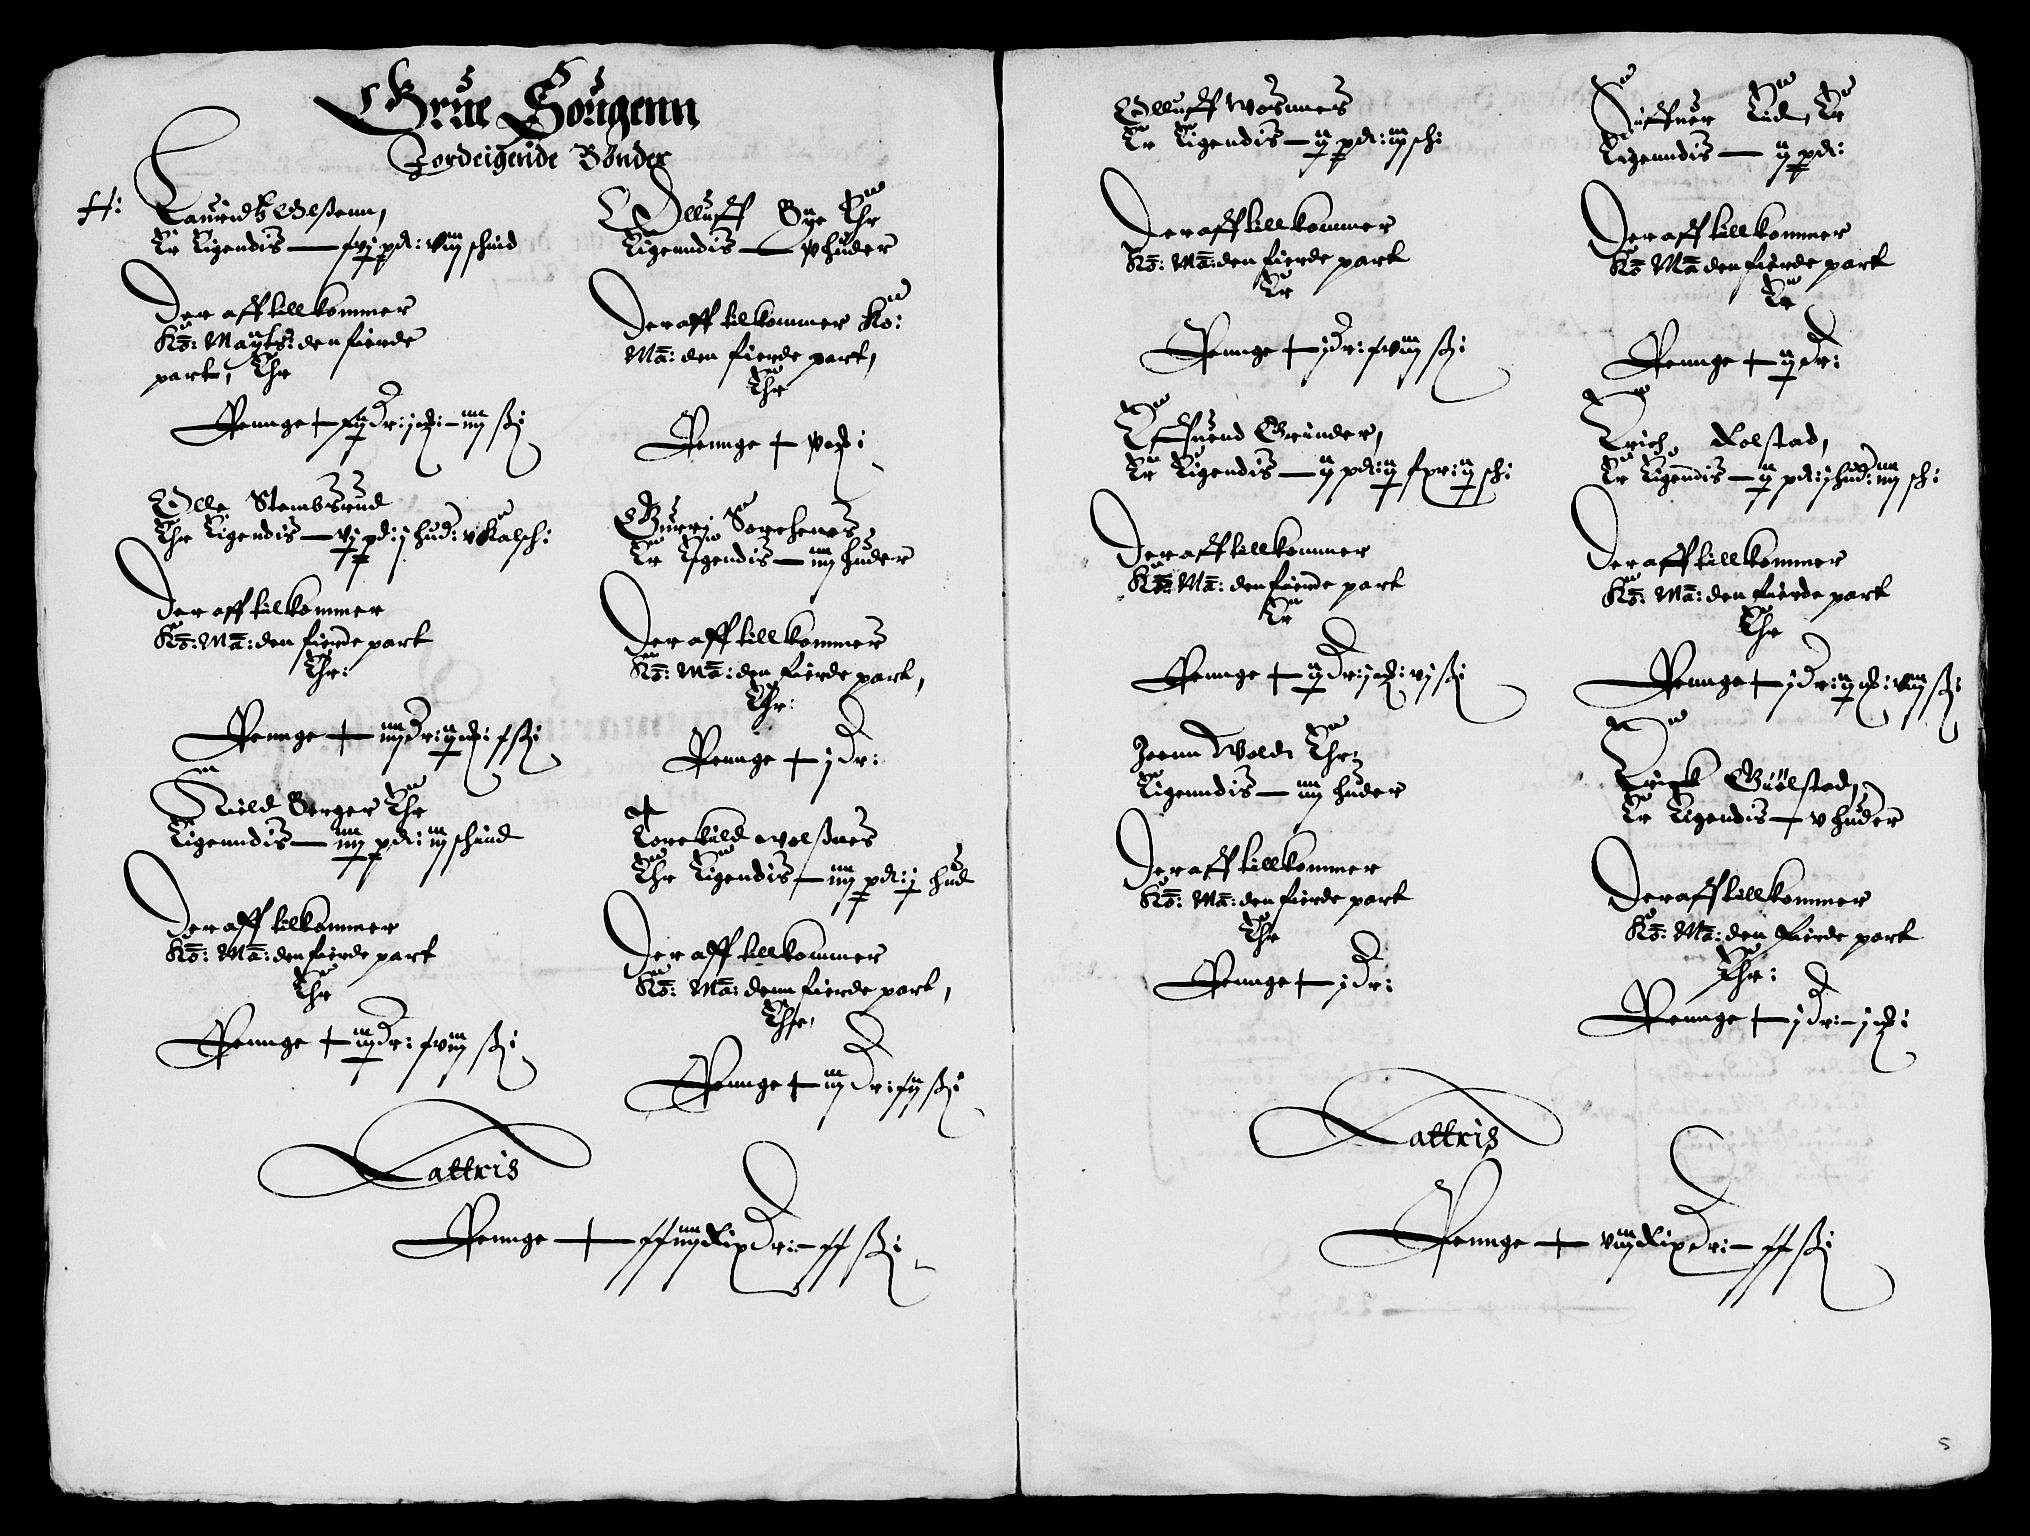 Grue Sougenn
Jordeigende Bönder
H:
Lauridtz Olßenn,
Er Eigendis — xvj pd: viij schind
Der aff till kommer
Ko: Mayts: den fierde
part, Ehr
Penge + xij dr: j ort: iiij ß:
Olle Stembsrud
Ehr Eigendis — vj pd: j hud: v Kalsch:
Der aff till kommer
Ko: Ma: den fierde part
Ehr:
Penge + iiij dr: ij ort: x ß:
Kield Berger Ehr
Eigenndis — iiij pd: iij schind
Der aff till kommer
Ko: Ma: den fierde part
Ehr
Penge + iij dr: xviij ß:
Olluff Bye Ehr
Eigenndis — v huder
Der aff till kommer Ko:
Ma: den fierde part,
Ehr
Penge + v ort:
Gurri Sorchenes
Er Eigendis — iiij huder
Der aff till kommer
Ko: Ma: den fierde part,
Ehr:
Penge + j dr:
Torekild wolßnes
Ehr Eigendis — iiij pd: j hud
Der aff till kommer
Ko: Ma: denn fierde part,
Ehr,
Penge + iij dr: xij ß:
Lattris
Penge + xxiiij Rix dr: — xx ß:
Olluff wosnnes
Er Eigendis — ij pd: iij sch:
Der aff till kommer
Ko: Ma: den fierde part
Er
Penge + j dr: xviij ß:
Effuend Grinder,
Er Eigendis — ij pd: ij sch:
Der aff till kommer
Ko: Ma: den fierde part
Er
Penge + ij dr: j ort: vj ß:
Joenn Wold Ehr
Eigenndis — iiij huder
Der aff till kommer
Ko: Ma: den fierde part
Ehr
Penge + j dr:
Siffuer Lid, Er
Eigenndis — ij pd:
Der aff till kommer
Ko Ma den fierde part
Er
Penge + ij dr:
Erich Kolstad,
Er Eigendis — ij pd: j hud: iiij sch:
Der aff till kommer
Ko: Ma: den fierde part
Ehr
Penge + j dr: ij ort: viij ß:
Erick Guölstad,
Er Eigendis — v huder
Der aff till kommer
Ko: Ma: den fierde part
Ehr:
Penge + j dr: — j ort:
Lattris
Penge + viij Rix dr: — xx ß:
5